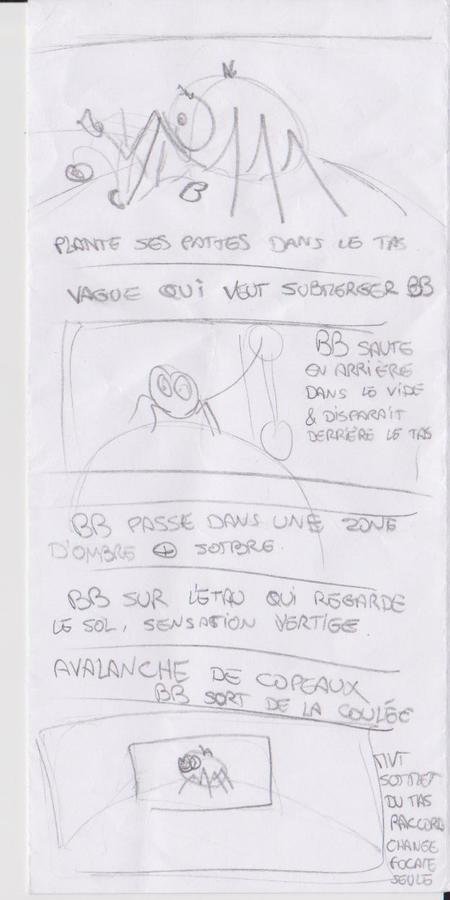 B
PLANTE SES PATTES DANS LE TAS
VAGUE QUI VEUT SUBMERGER BB
BB SAUTE
EN ARRIÈRE
DANS LE VIDE
& DISPARAIT
DERRIÈRE LE TAS
BB PASSE DANS UNE ZONE
D'OMBRE ⊕ SOMBRE.
BB SUR L'ETAU QUI REGARDE
LE SOL, SENSATION VERTIGE.
AVALANCHE DE COPEAUX
BB SORT DE LA COULÉE
MVT
SOMMET
DU TAS
RACCORD
CHANGE
FOCALE
SEULE